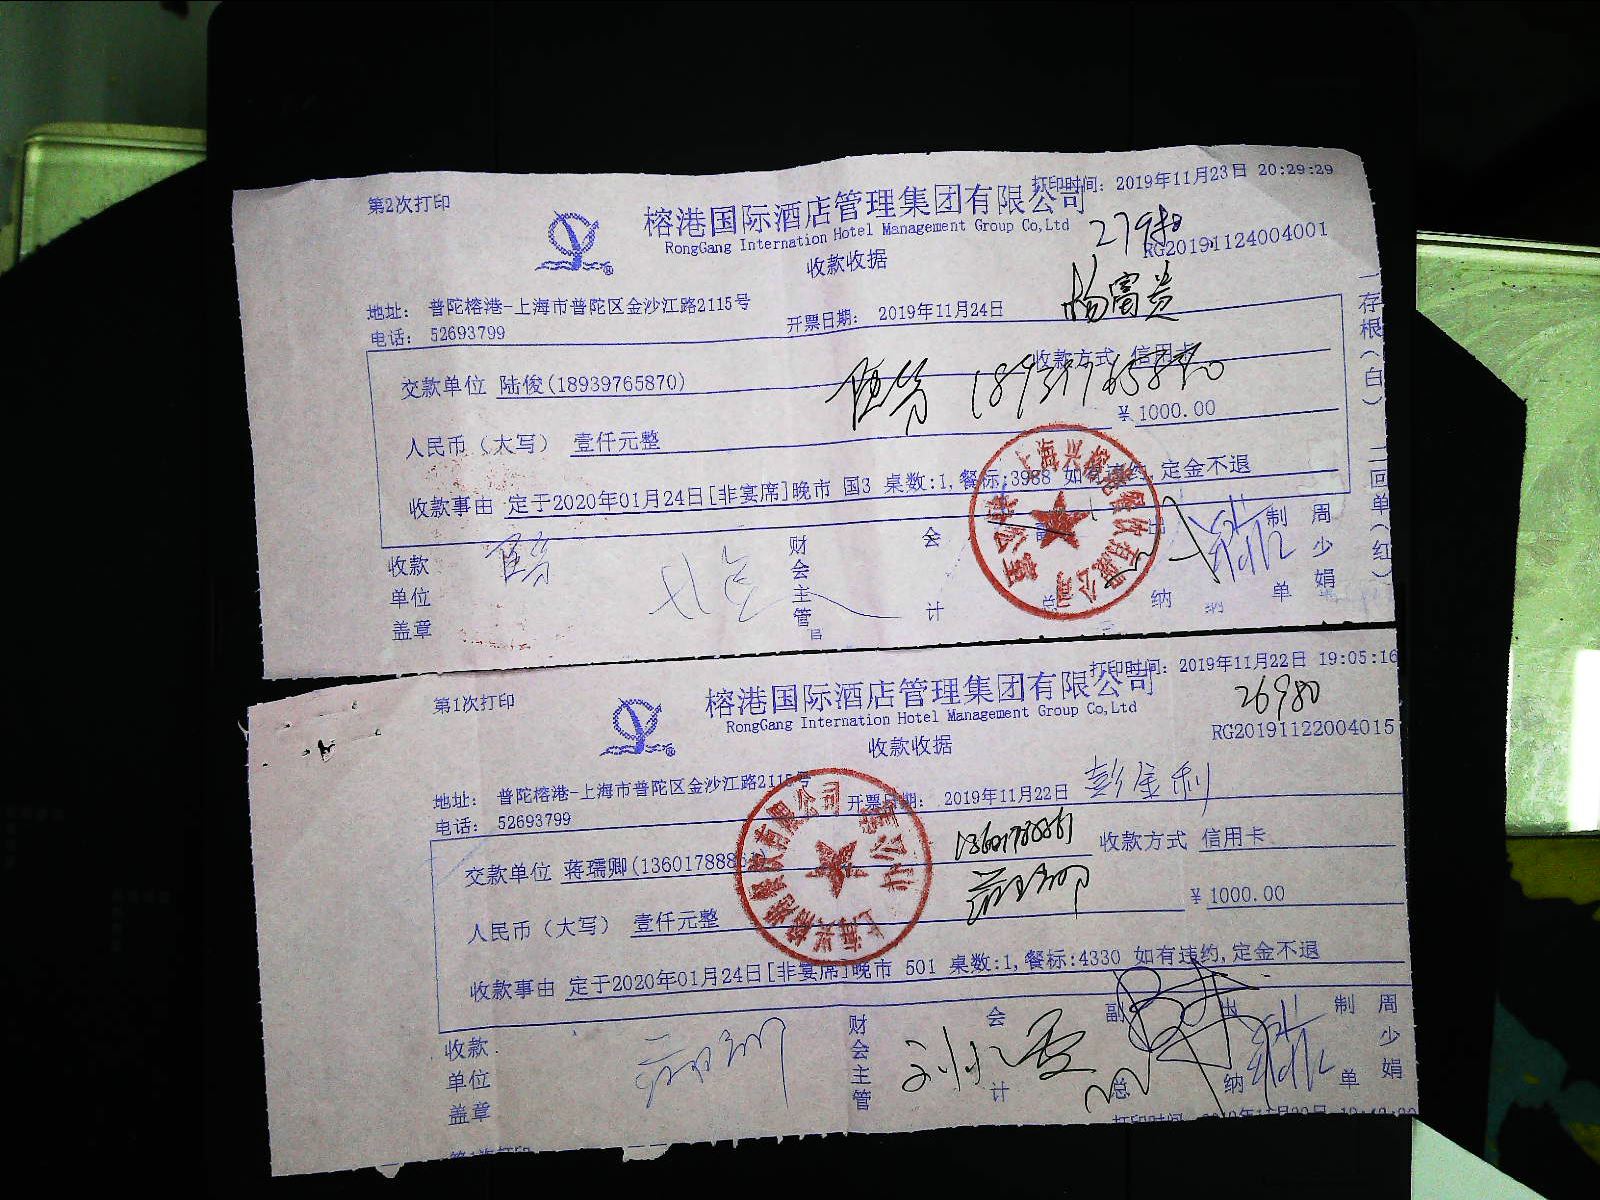 第2次打印
打印时间: 2019年11月23日 20:29:29
榕港国际酒店管理集团有限公司
RongGang Internation Hotel Management Group Co,Ltd
收款收据
RG20191124004001
地址: 普陀榕港-上海市普陀区金沙江路2115号
电话: 52693799
开票日期: 2019年11月24日
杨富贵
交款单位 陆俊(18939765870)
收款方式 信用卡
人民币（大写） 壹仟元整
¥ 1000.00
收款事由 定于2020年01月24日[非宴席]晚市 国3 桌数:1,餐标:3988 如有违约,定金不退
收款单位盖章
财会主管
会计
副总
出纳
制单
周少娟
存根(白)
二回单(红)
第1次打印
打印时间: 2019年11月22日 19:05:16
榕港国际酒店管理集团有限公司
RongGang Internation Hotel Management Group Co,Ltd
26980
收款收据
RG20191122004015
地址: 普陀榕港-上海市普陀区金沙江路2115号
电话: 52693799
开票日期: 2019年11月22日
彭金利
交款单位 蒋瑀卿(13601788861
13601788861
收款方式 信用卡
人民币（大写） 壹仟元整
¥ 1000.00
收款事由 定于2020年01月24日[非宴席]晚市 501 桌数:1,餐标:4330 如有违约,定金不退
收款单位盖章
财会主管
会计
副总
出纳
制单
周少娟